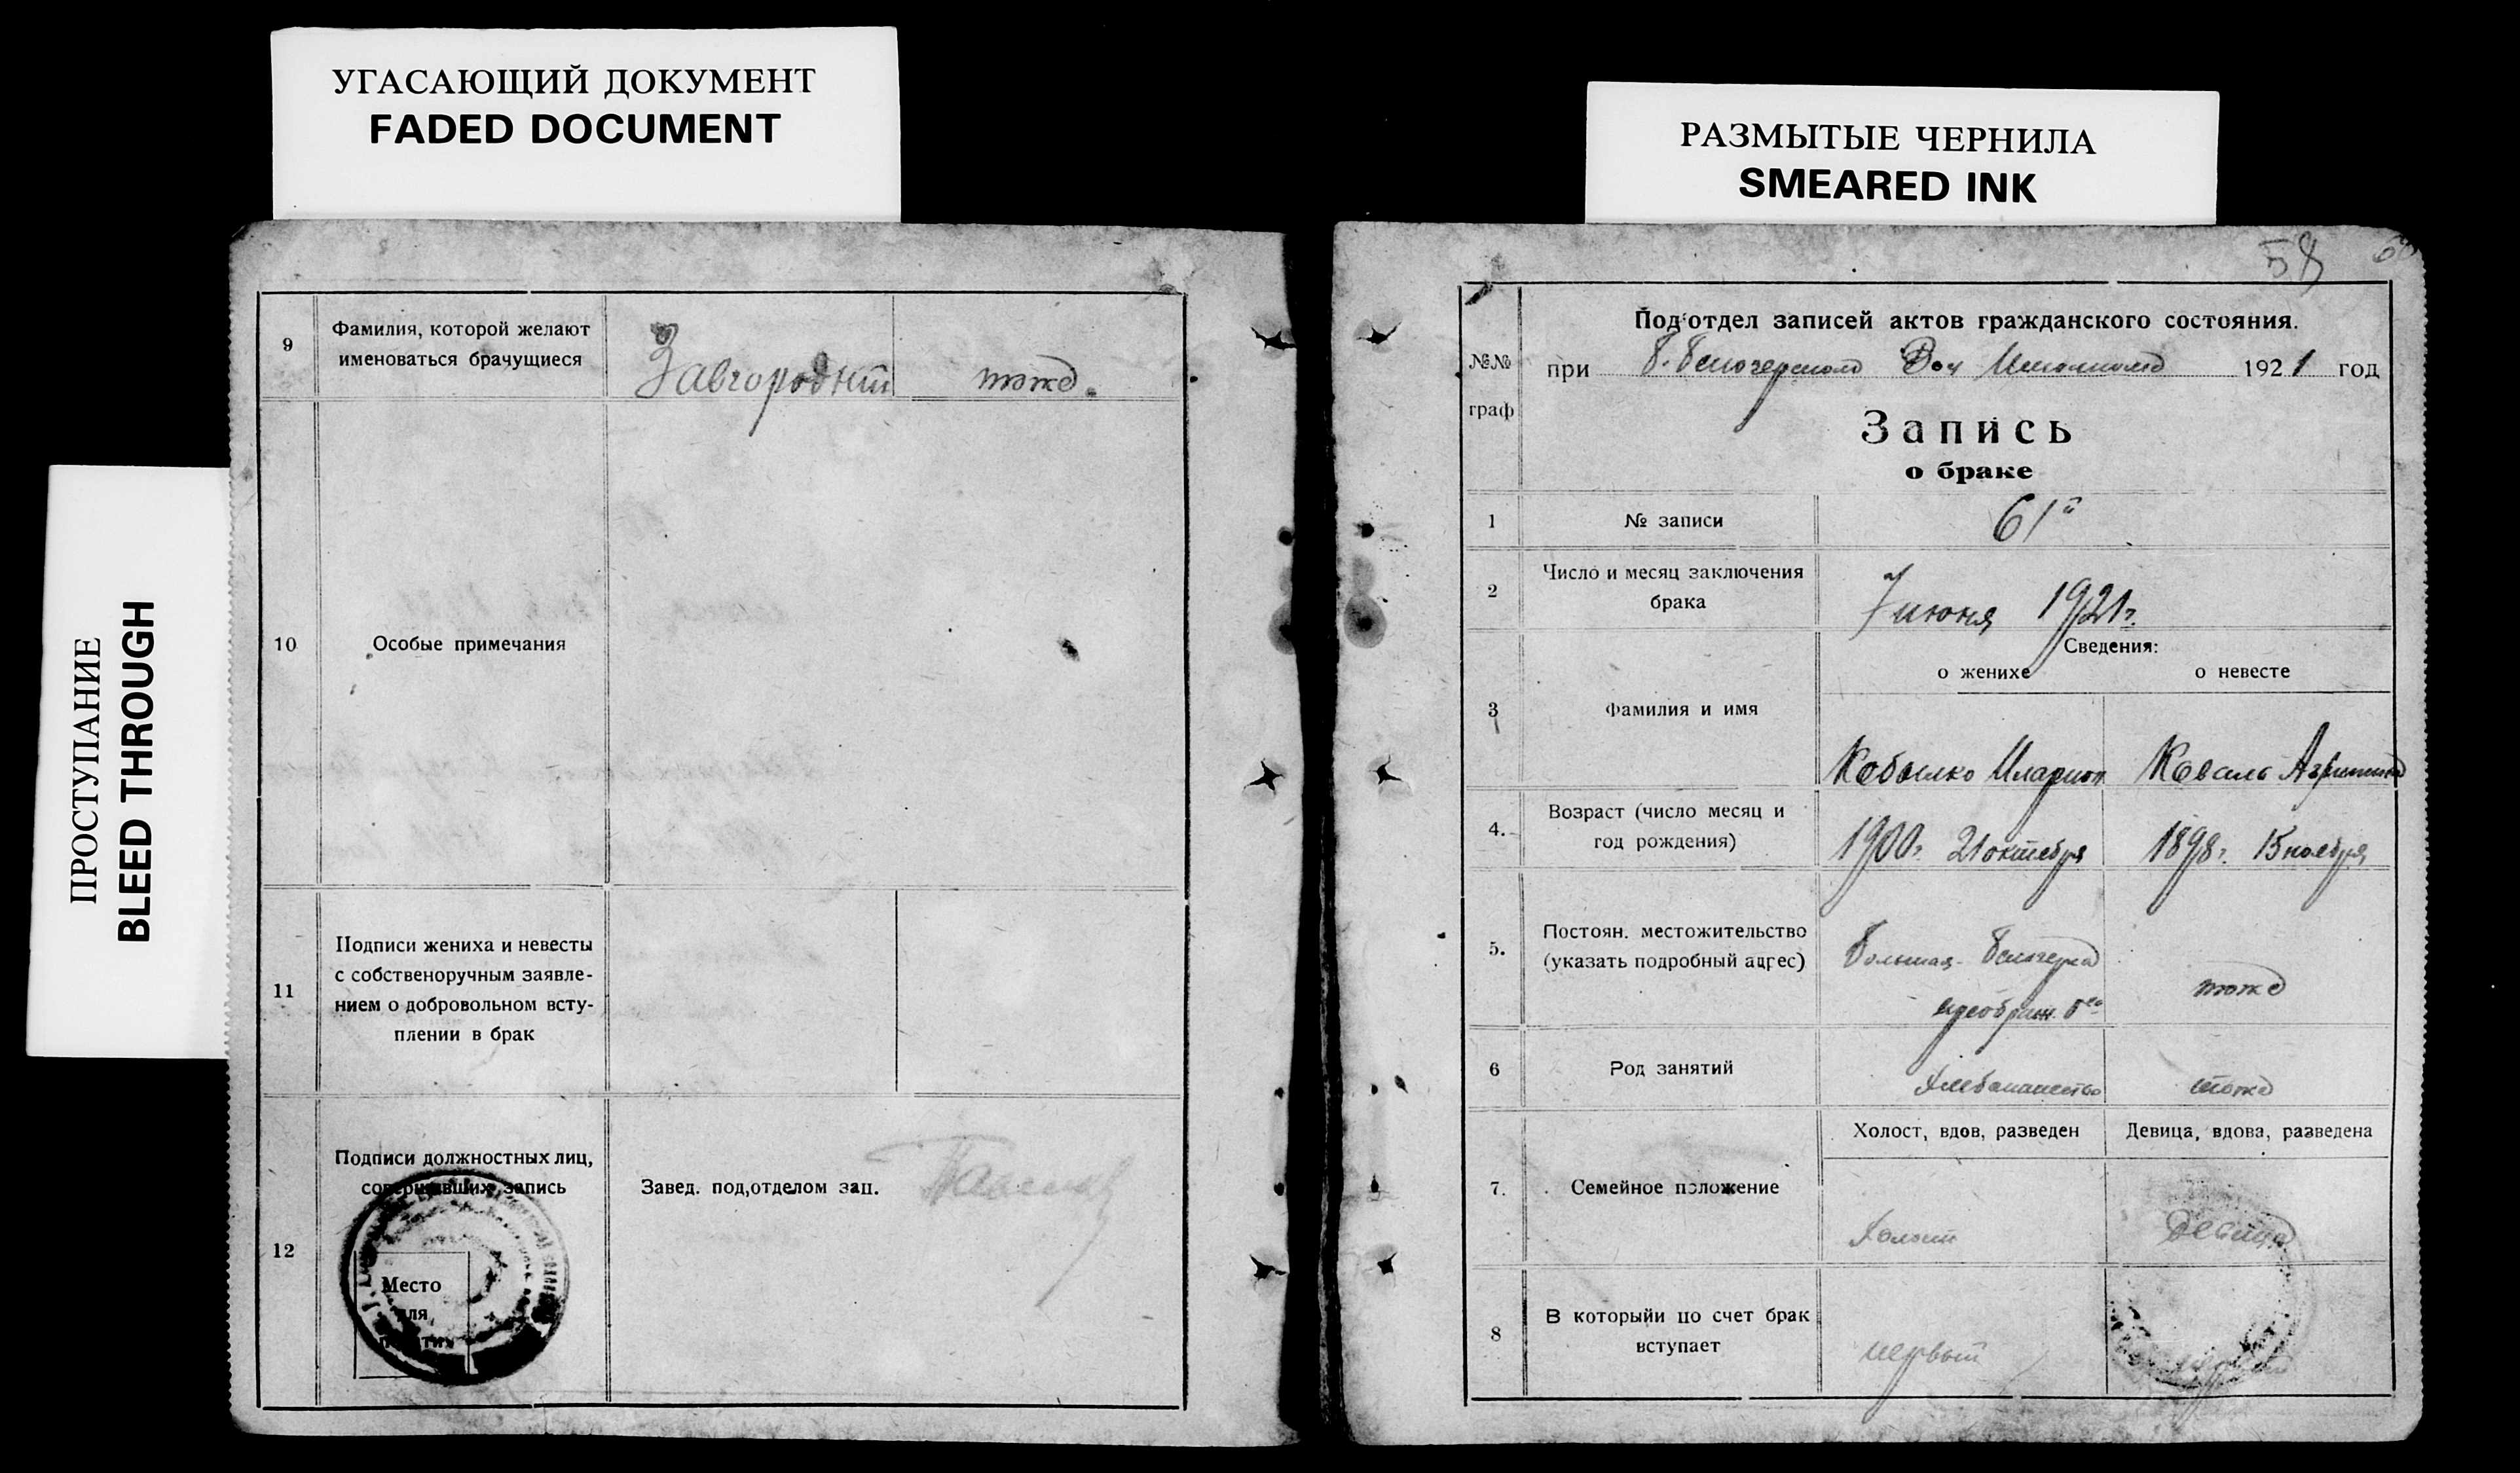 УГАСАЮЩИЙ ДОКУМЕНТ
FADED DOCUMENT
ПРОСТУПАНИЕ
BLEED THROUGH
9
Фамилия, которой желают
именоваться брачущиеся
Завгородний
тоже
10
Особые примечания
11
Подписи жениха и невесты
с собственоручным заявле-
нием о добровольном всту-
плении в брак
12
Подписи должностных лиц,
совершивших запись
Место
для
Завед. под,отделом зап.
РАЗМЫТЫЕ ЧЕРНИЛА
SMEARED INK
58
№№
граф
Под'отдел записей актов гражданского состояния.
при 1921 год
Запись
о браке
1
№ записи
61й
2
Число и месяц заключения
брака
7 июня 1921г.
Сведения:
о женихе
о невесте
3
Фамилия и имя
Кобылко Иларион
Коваль
4.
Возраст (число месяц и
год рождения)
1900г. 21 октября
1898г. 15 ноября
5.
Постоян. местожительство
(указать подробный адрес)
Большая-Белозерка
тоже
6
Род занятий
Хлебопашество
тоже
7.
Семейное положение
Холост, вдов, разведен
Девица, вдова, разведена
Холост
Девица
8
В которыйи по счет брак
вступает
первый